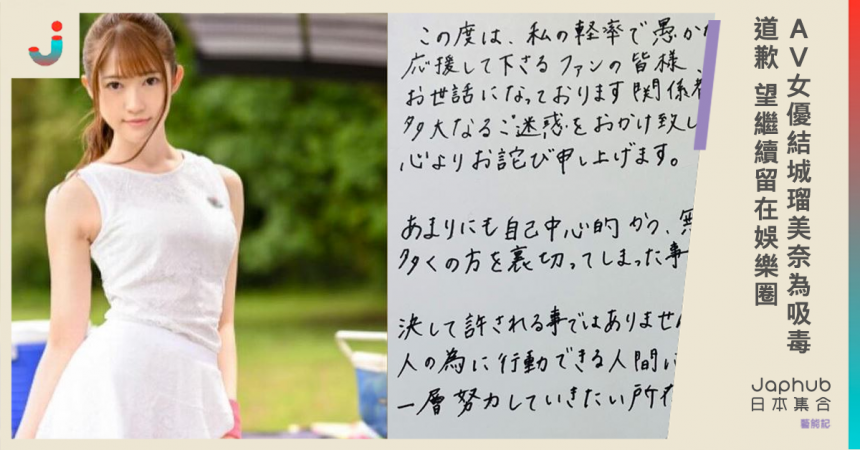 この度は、私の軽率で愚か
応援して下さるファンの皆様、
お世話になっております関係者
多大なるご迷惑をおかけ致し
心よりお詫び申し上げます。
あまりにも自己中心的かつ、無
多くの方を裏切ってしまった事
決して許される事ではありません
人の為に行動できる人間に
一層努力していきたい所存
AV女優結城瑠美奈為吸毒
道歉 望繼續留在娛樂圈
Japhub
日本集合
藝能記